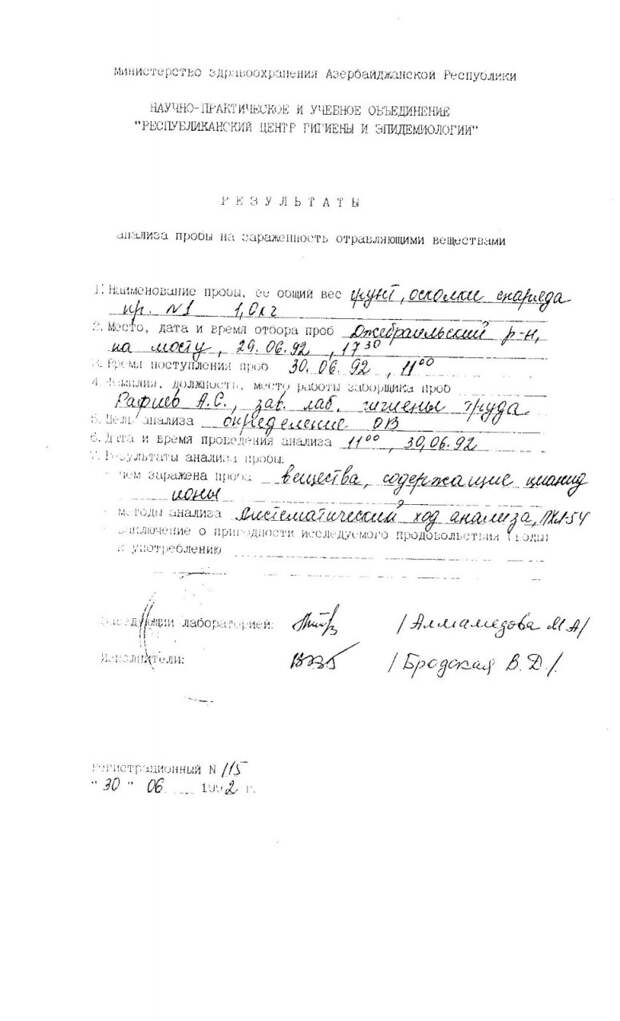 министерство здравоохранения Азербайджанской Республики
НАУЧНО-ПРАКТИЧЕСКОЕ И УЧЕБНОЕ ОБЪЕДИНЕНИЕ
"РЕСПУБЛИКАНСКИЙ ЦЕНТР ГИГИЕНЫ И ЭПИДЕМИОЛОГИИ"
Р Е З У Л Ь Т А Т Ы
анализа пробы на зараженность отравляющими веществами
1. Наименование пробы, ее общий вес грунт, осколки снаряда
пр. N1 1,0 кг
2. Место, дата и время отбора проб Джебраильский р-н,
на мосту, 29.06.92, 17 30
3. Время поступления проб 30.06.92, 11 00
4. Фамилия, должность, место работы заборщика проб
Рафиев А.С., зав. лаб. гигиены труда
5. Цель анализа определение ОВ
6. Дата и время проведения анализа 11 00, 30,06.92
7. Результаты анализа пробы:
- чем заражена проба вещества, содержащие цианид
ионы
- методы анализа систематический ход анализа, ПХЛ-54
- заключение о пригодности исследуемого продовольствия (воды)
к употреблению
Заведующий лабораторией: /Алмамедова М А/
Исполнители: /Бродская В. Д/.
Регистрационный N 115
"30" 06 1992 г.